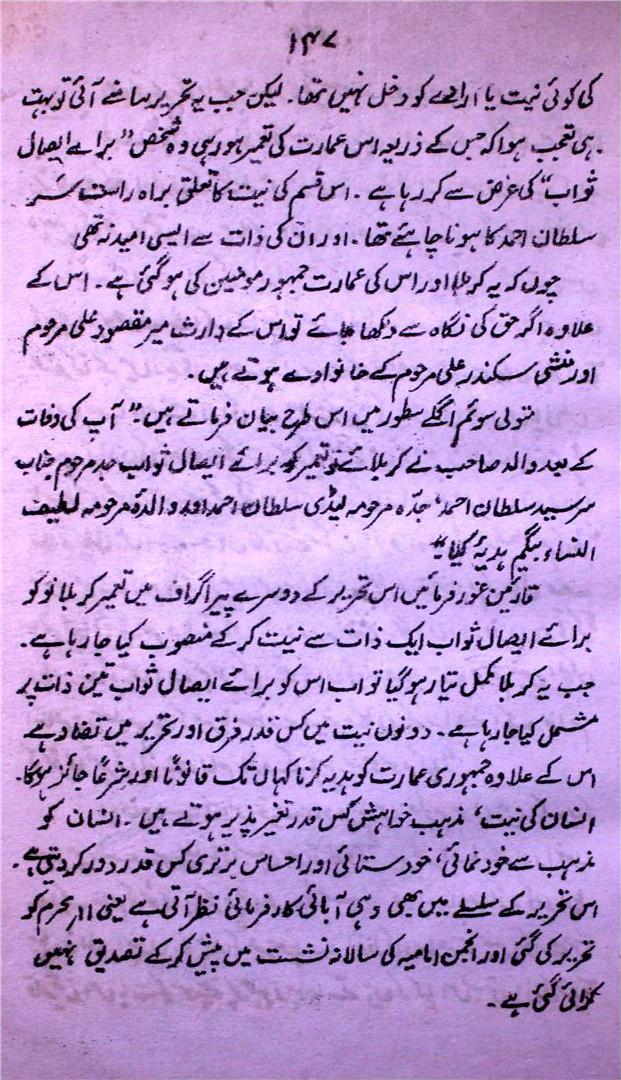 ۱۴۷
کی کوئی نیت یا ارادے کو دخل نہیں تھا۔ لیکن جب یہ تحریر سامنے آئی تو بہت
ہی تعجب ہوا کہ جس کے ذریعہ اس عمارت کی تعمیر ہورہی وہ شخص " برائے ایصال
ثواب" کی غرض سے کر رہا ہے ۔ اس قسم کی نیت کا تعلق براہ راست سَر
سلطان احمد کا ہونا چاہئے تھا۔ اور ان کی ذات سے ایسی امید نہ تھی
چوں کہ یہ کربلا اور اس کی عمارت جمہور مومنین کی ہو گئی ہے۔ اس کے
علاوہ اگر حق کی نگاہ سے دیکھا جائے تو اس کے وارث میر مقصود علی مرحوم
اور منشی سکندر علی مرحوم کے خانوادے ہوتے ہیں۔
متولی سوئم اگلے سطور میں اس طرح بیان فرماتے ہیں۔" آپ کی وفات
کے بعد والد صاحب نے کربلائے نو تعمیر کو برائے ایصال ثواب جد مرحوم جناب
سر سید سلطان احمد، جدّہ مرحومہ لیڈی سلطان احمد اور والدۂ مرحومہ لطیف
النساء بیگم ہدیۂ کیا"
قارئین غور فرمائیں اس تحریر کے دوسرے پیراگراف میں تعمیر کربلا نو کو
برائے ایصال ثواب ایک ذات سے نیت کر کے منصوب کیا جا رہا ہے۔
جب یہ کربلا مکمل تیار ہو گیا تو اب اس کو برائے ایصال ثواب تین ذات پر
مشتمل کیا جا رہا ہے۔ دونوں نیت میں کس قدر فرق اور تحریر میں تضاد ہے
اس کے علاوہ جمہوری عمارت کو ہدیہ کرنا کہاں تک قانونًا اور شرعًا جائز ہوگا۔
انسان کی نیت، مذہب خواہش کس قدر تغیر پذیر ہوتے ہیں۔ انسان کو
مذہب سے خود نمائی، خود ستائی اور احساس برتری کس قدر دور کر دیتی ہے۔
اس تحریر کے سلسلے میں بھی وہی آبائی کارفرمائی نظر آتی ہے یعنی ۱۱ محرم کو
تحریر کی گئی اور انجمن امامیہ کی سالانہ نشست میں پیش کرکے تصدیق نہیں
کرائی گئی ہے۔